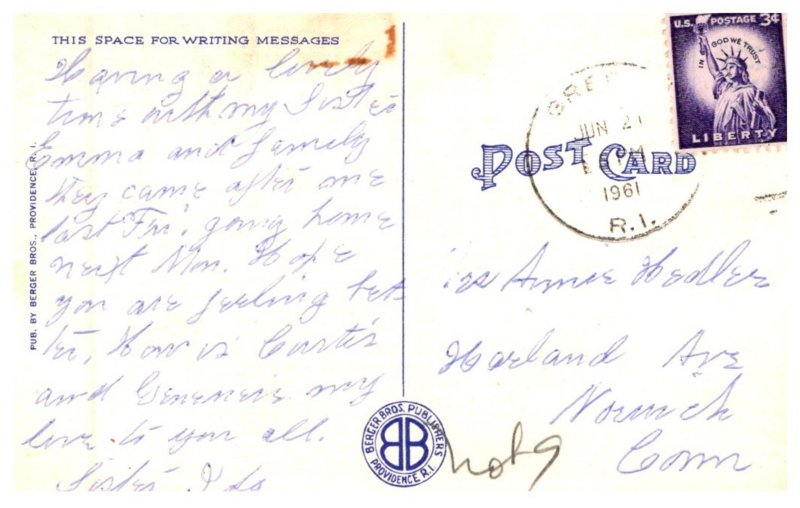 THIS SPACE FOR WRITING MESSAGES
Having a lovely
time with my Sister
Emma and family
they came after me
last Fri. going home
next Mon. Hope
you are feeling bet
ter, How is Curtis
and my
love to you all.
Sister Ida
PUB. BY BERGER BROS., PROVIDENCE, R. I.
BERGER BROS. PUBLISHERS
BB
PROVIDENCE, R.I.
U.S. POSTAGE 3¢
IN GOD WE TRUST
LIBERTY
JUN 21
PM
1961
R.I.
POST CARD
Annie Hedler
Harland Ave
Norwich
Conn